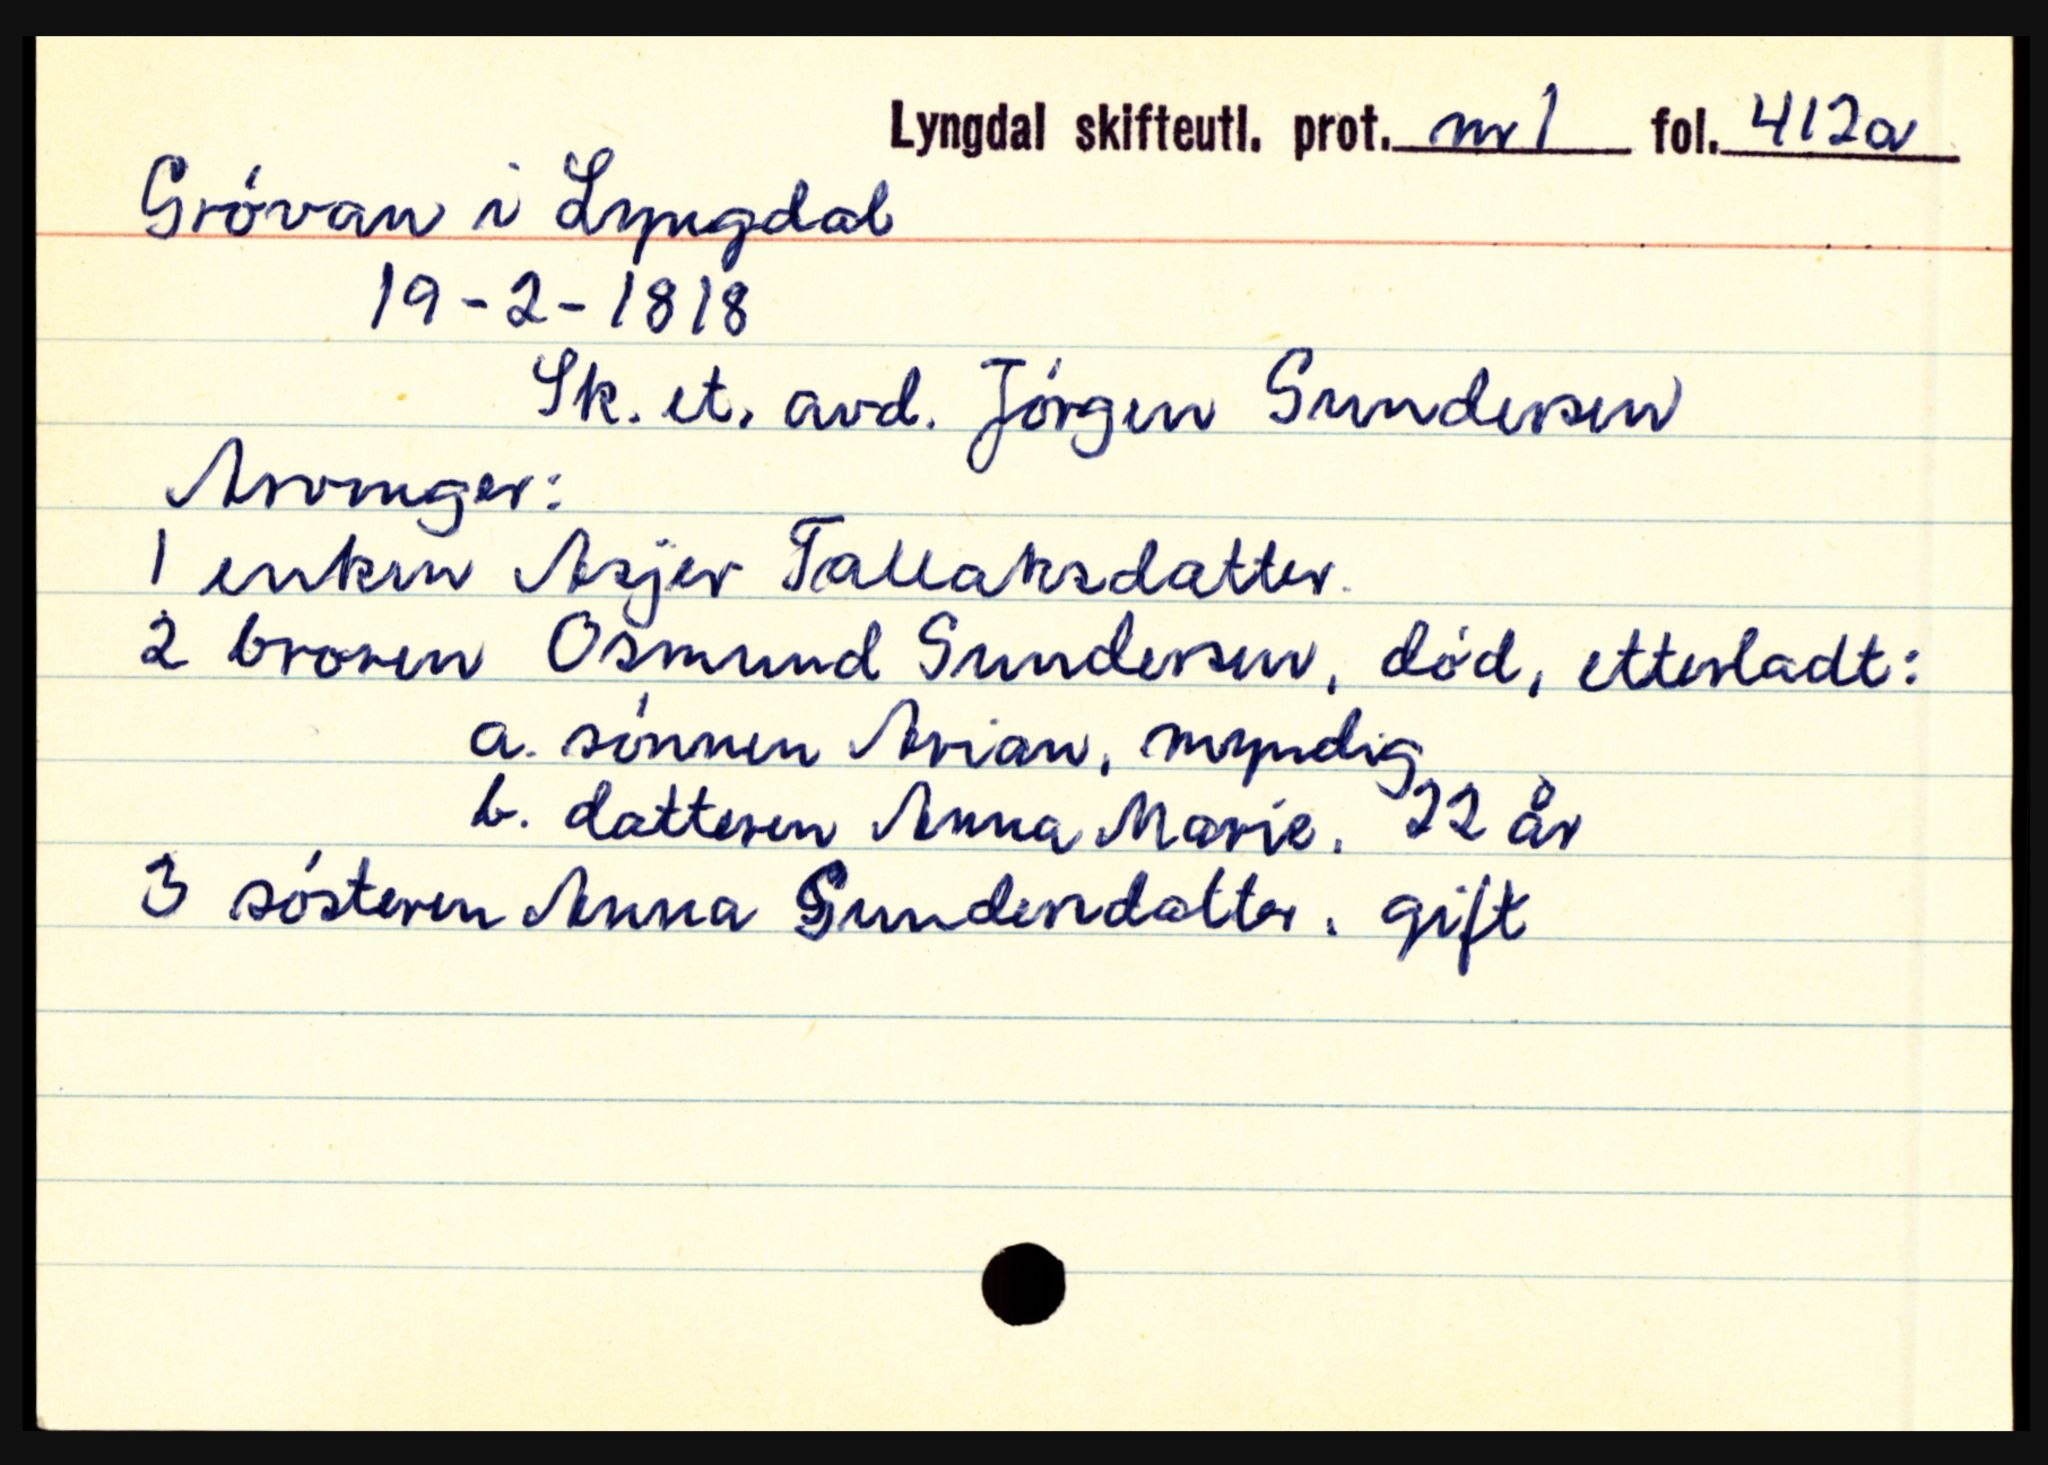 Lyngdal skifteutl. prot. nr 1 fol. 412a
Gróvan i Lyngdal
19-2-1818
Sk. et. avd. Jórgen Gundersen
Arvinger:
1 enken Asjer Tallaksdatter.
2 broren Osmund Gundersen, död, etterladt:
a. sónnen Arian, myndig
b. datteren Anna Marie. 22 år
3 sósteren Anna Gundersdatter. gift